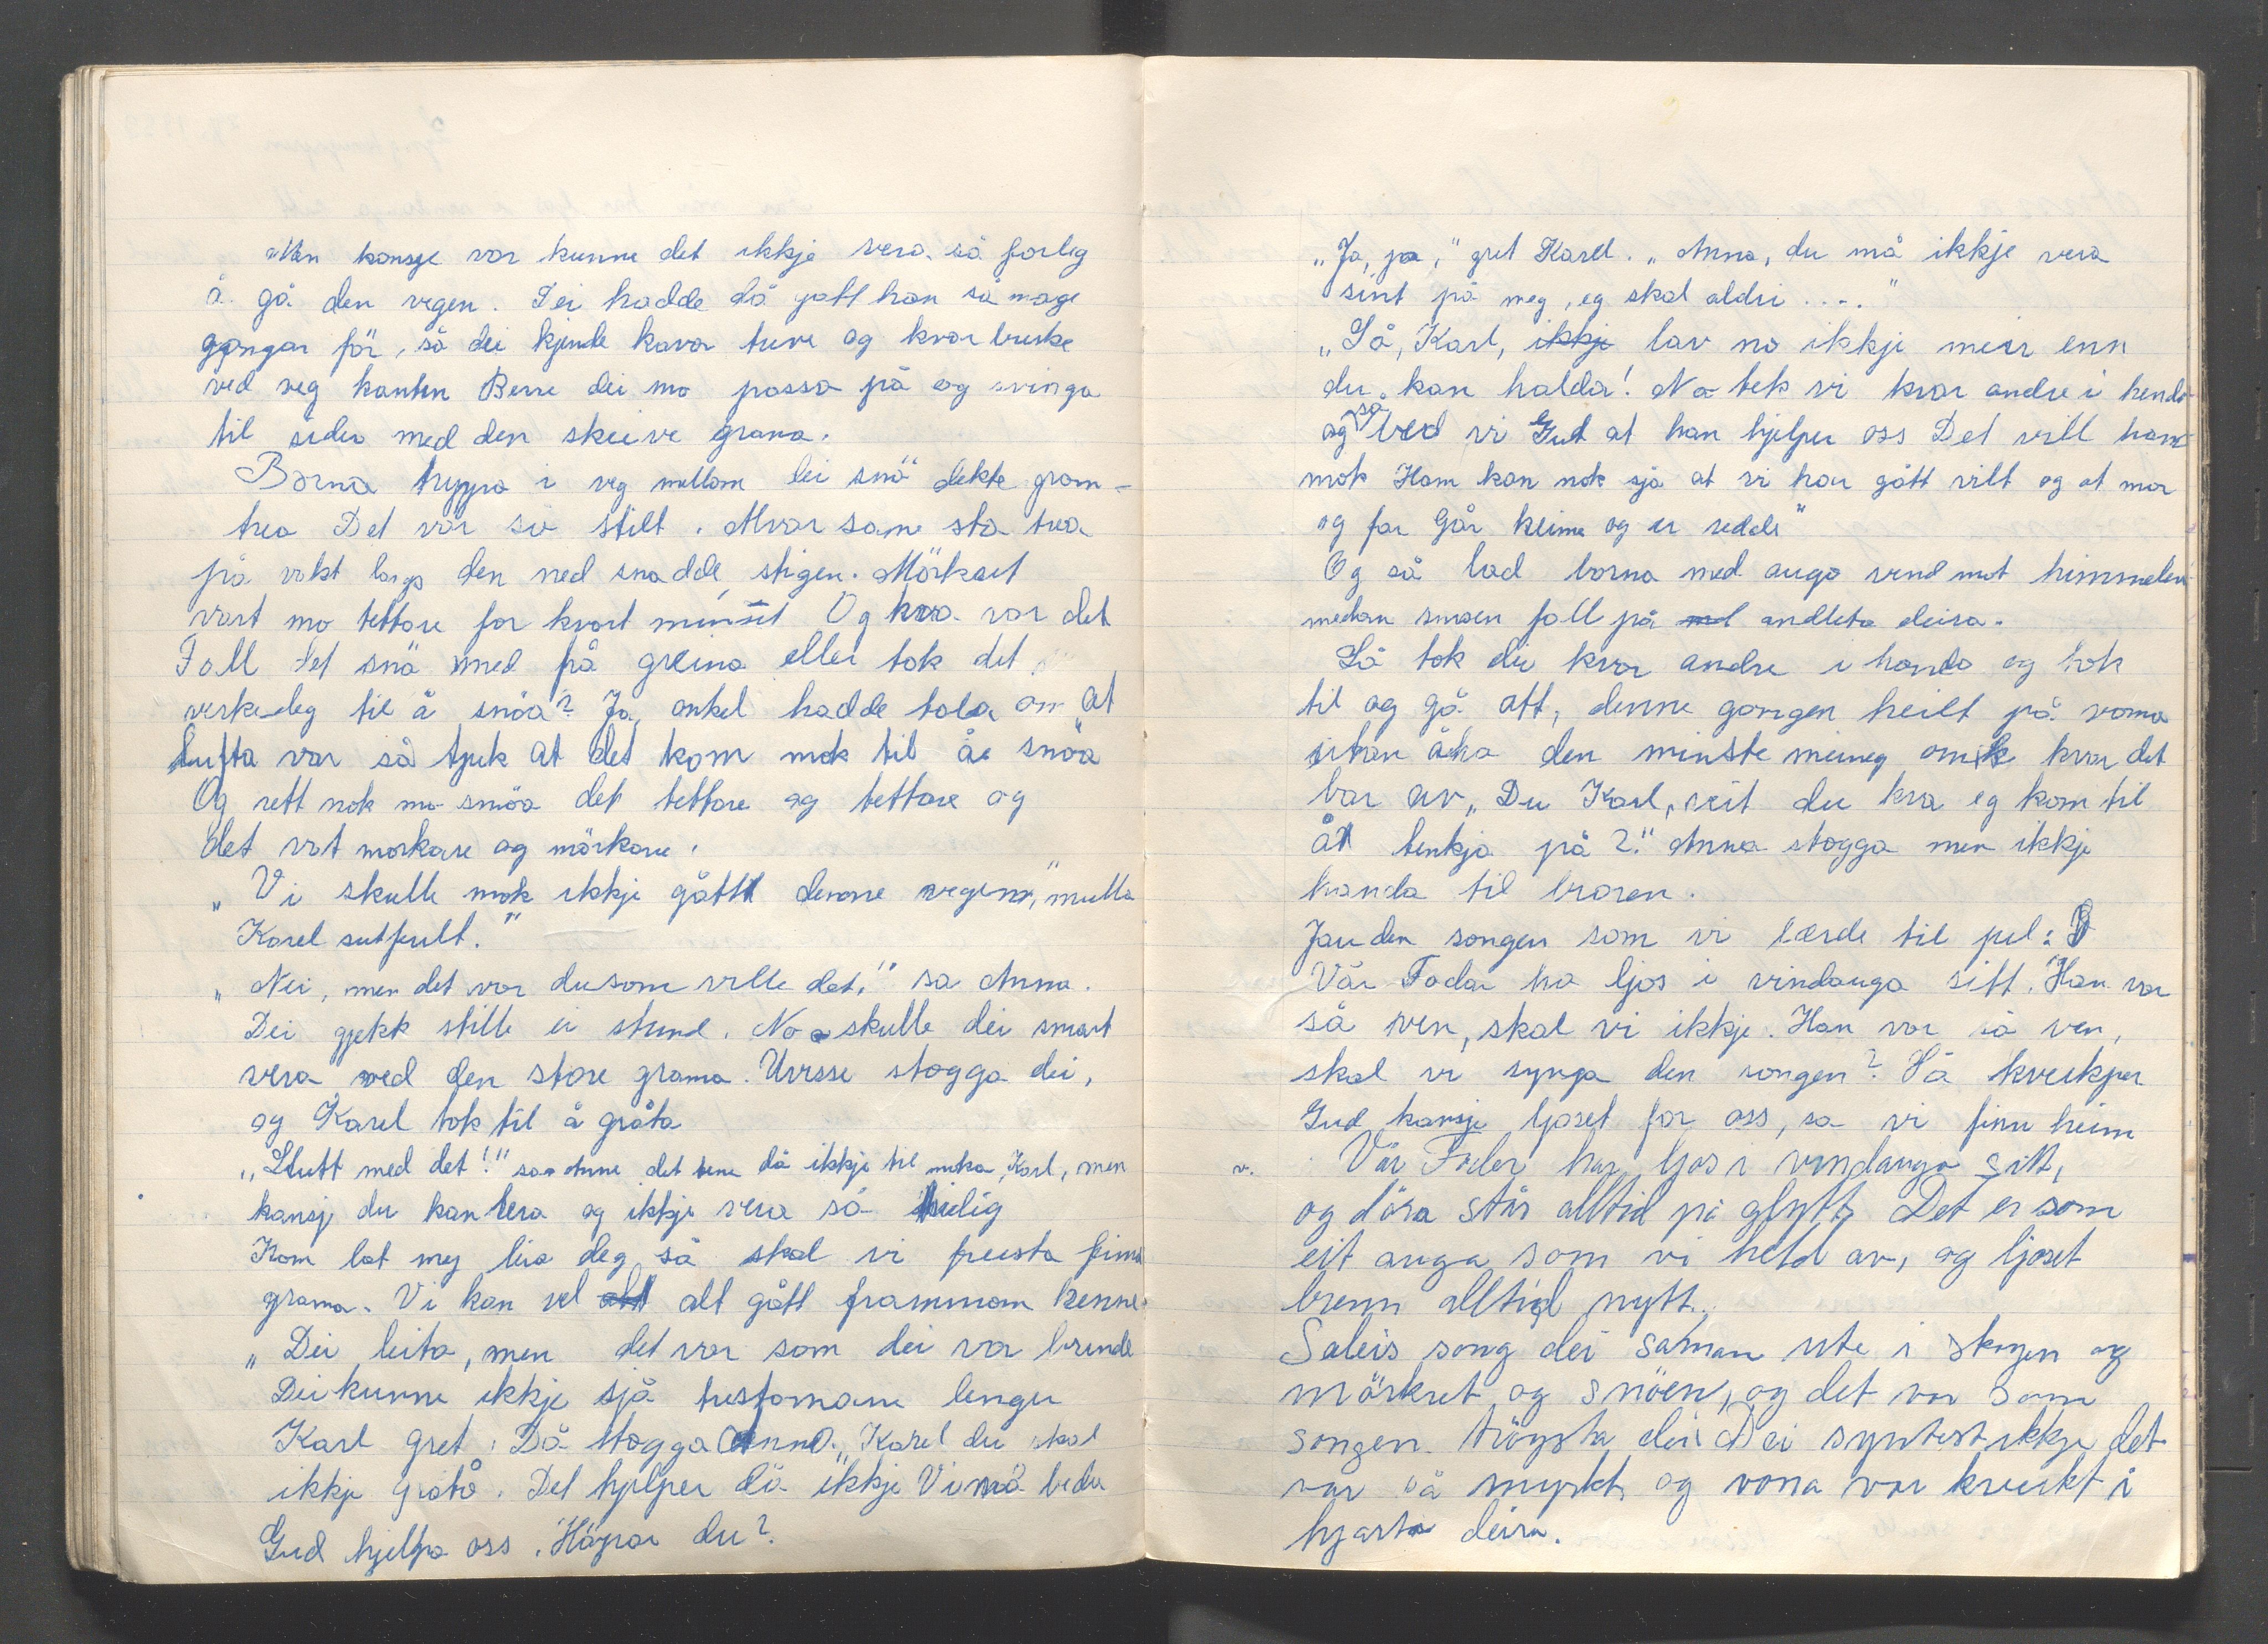 "Men kansje var kunne det ikkje vera så farleg
å gå den vegen. Dei hadde då gått han så mage
gongar för, så dei kjende kavar tuve og kvar buske
ved veg kanten Berre dei mo passa på og svinga
til sides med den skeive grana.
Borna trippa i veg mellom dei snö dekte gran-
trea Det var so stilt. Alvor same sto trea
på vakt langs den ned snødde stigen. Mörkset
vart mo tettare for kvart minutt Og kva var det
Fall det snö med på greina eller tok det
verkeleg til å snöa? Ja, onkel hadde tala om at
lufta var så tjuk at det kom nok til å snöa
Og rett nok mo snöa det tettare og tettare og
det vat morkare og mörkare.
"Vi skulle nok ikkje gått denne vegen," mulla
Karel sutfult."
"Nei, men det var du som ville det," sa Anna.
Dei gjekk stille ei stund. No skulle dei snart
vera ved den store grana. Uvisse stogga dei,
og Karel tok til å gråta
"Slutt med det!" sa Anne det tene då ikkje til noka, Karl, men
kansje du kan tera og ikkje vera så hidig
Kom lat meg leia deg så skal vi freista finna
grana. Vi kan vel alt gått frammom henne.
"Dei leita, men det var som dei var blinde
Dei kunne ikkje sjå trestomane lenger
Karl gret. Då stogga Anna. "Karel du skal
ikkje gråta. Det hjelper då ikkje Vi må beda
Gud hjelpa oss. Höyrar du?
"Ja, ja," gret Karel. "Anna, du må ikkje vera
sint på meg, eg skal aldri ...."
"Så, Karl, ikkje lav no ikkje meir enn
du kan halda! No tek vi kvar andre i henda
og så bed vi Gud at han hjelper oss Det vill han
nok Ham kan nok sjå at vi har gått vilt og at mor
og far går heime og er redde"
Og så bad borna med augo vend mot himmelen
medan snøen fall på andleta deira.
Så tok dei kvar andre i handa og tok
til og gå att, denne gongen heilt på vona
utan åha den minste meineg om kvar det
bar av "Du Karl, veit du kva eg kom til
å tenkja på?" Anna stogga men ikkje
handa til broren.
Jau den songen som vi lærde til jul:
Vår Fadar ha ljos i vindauga sitt. Han var
så ven, skal vi ikkje. Han var så ven,
skal vi synga den songen? Då kveikjer
Gud kansje ljoset for oss, so vi finn heim
v. Vår Fader har ljos i vindauga sitt,
og döra står alltid på glytt Det er som
eit auga som vi held av, og ljoset
brenn alltid nytt.
Saleis song dei saman ute i skogen og
mörkret og snöen, og det var som
songen tröysta dei Dei syntest ikkje det
var så myrkt, og vona var kveikt i
hjarta deira.